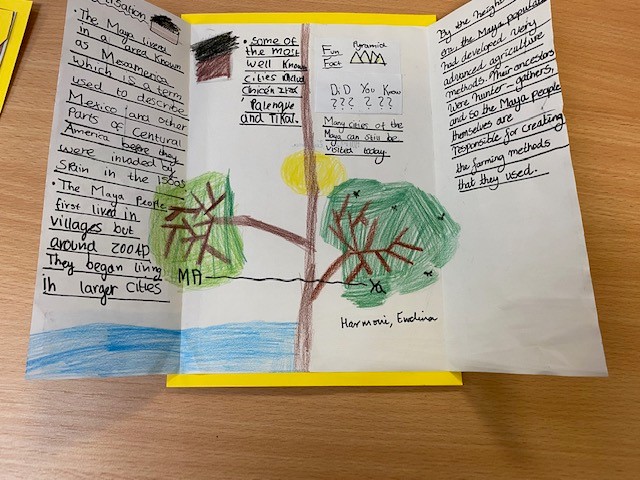 isation
• The Maya lived
in a area known
as Mesamerica
which is a term
used to describe
Mexico and other
Parts of Centural
America before they
were invaded by
Spain in the 1500s
• The Maya People
first lived in
villages but
around 200AD
They began living
in larger cities
• Some of
the most
well known
cities
Palenque
and Tikal.
Fun
Fact
Pyramid
DiD You Know
??? ? ??
Many cities of the
Maya can still be
visited today.
MA
ya
Harmoni,
By the height
era, the Maya populat
had developed very
advanced agriculture
methods. Their ancestors
were hunter-gathers,
and so the Maya people
themselves are
responsible for creating
the farming methods
that they used.